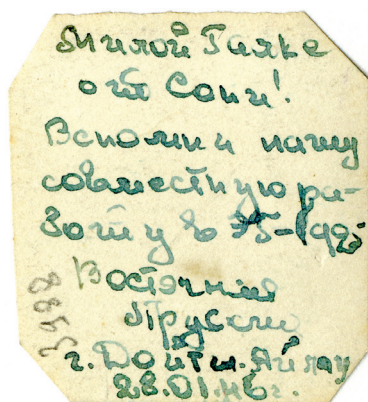 Милой Гальке
от Сони!
Вспомни нашу
совместную ра-
боту в
Восточной
Пруссии
г. Дойтш. Айлау
28.01.46 г.
3488